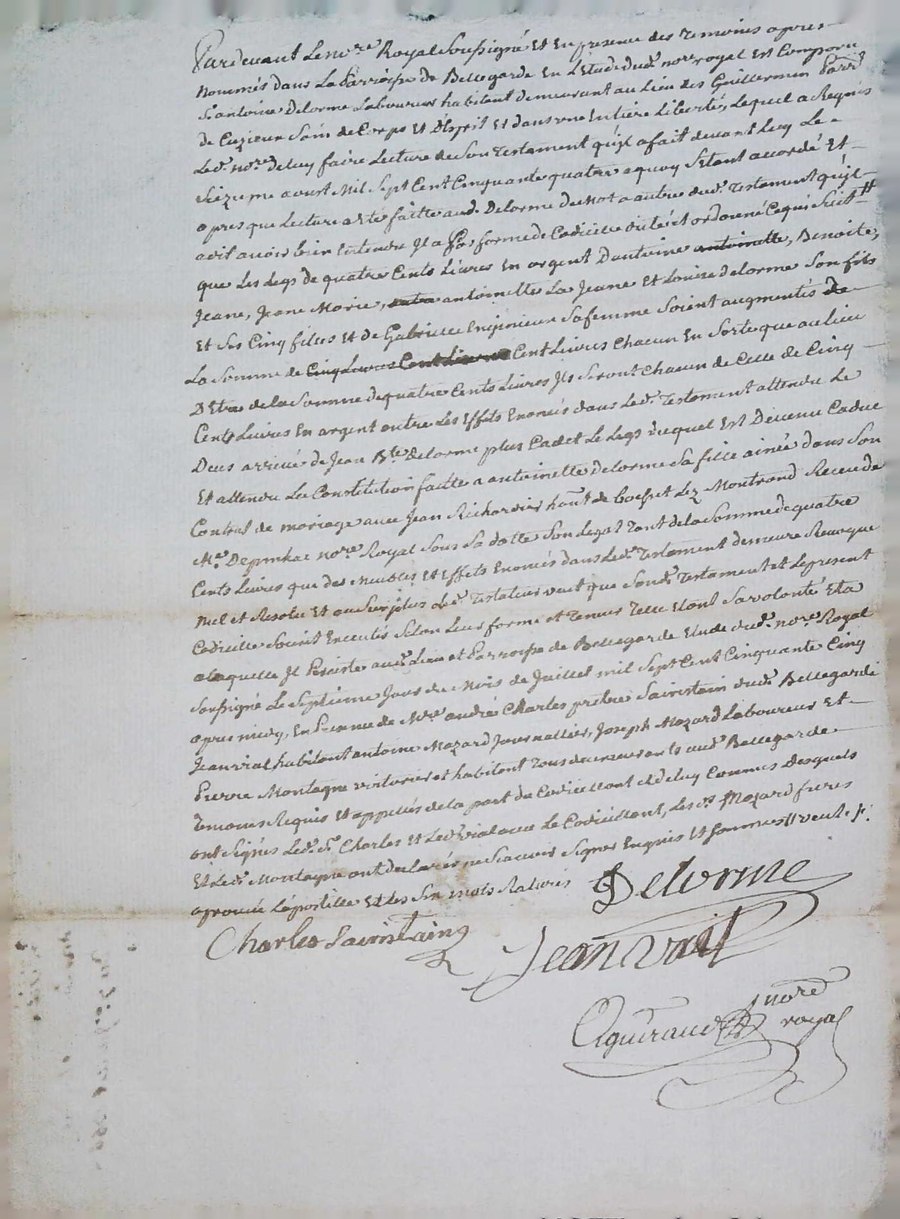 Pardevant Le nore Royal Soussigné Et En presence des Temoins apres
nommés dans La Parroisse de Bellegarde En L'Etude dud. nore royal Est Comparu
Sr antoine Delorme Laboureur habitant demeurant au Lieu des Guillermin Parr
de Cuzieux Sain de Corps Et D'Esprit Et dans une Entiere Liberté, Lequel a Requis
Led. nore de luy faire Lecture de Son Testament qu'il a fait devant Luy Le
Seizieme aoust Mil Sept Cent Cinquante quatre a quoy S'Etant accordé Et
apres que Lecture a Eté faitte aud. Delorme de mot a autre dud. Testament qu'il
a dit avoir bien Entendu Il a Par forme de Codicille Ordonné Ce qui Suit #
que Les Legs de quatre Cents Livres En argent D'antoine antoinette, Benoite,
Jeane, Jeane Marie, antoinette La Jeune Et Louise delorme Son fils
Et Ses Cinq filles Et de Gabrielle Sa femme Soient augmentés de
La Somme de Cinq Livres Cent Livres Cent Livres Chacun En Sorte que au lieu
D'Etre de la Somme de quatre Cents Livres Ils Seront Chacun de Celle de Cinq
Cents Livres En argent outre Les Effets Enoncés dans Led. Testament attendu Le
Deces arrivé de Jean Bte Delorme plus Cadet Le Legs duquel Est Devenu Caduc
Et attendu La Constitution faitte a antoinette delorme Sa fille ainée dans Son
Contrat de mariage avec Jean Richardier hant de Lez Montrond Receu de
Me nore Royal Sous Sa dotte Son Legat Tant de la Somme de quatre
Cents Livres que des Meubles Et Effets Enoncés dans Led. Testament demeure Revoqué
nul et Resolu Et au Surplus Led. Testateur veut que Sond. Testament et Le present
Codicille Soient Executés Selon Leur forme et Teneur Telle Etant Sa volonté Et a
laquelle Il Persiste aud. Lieu et Parroisse de Bellegarde Etude dud. nore Royal
Soussigné Le Septieme Jour du Mois de Juillet mil Sept Cent Cinquante Cinq
apres midy, En presence de Mre andré Charles prêtre Sacristain dud. Bellegarde
Jean Vial habitant antoine Mazard Journallier, Joseph Mazard Laboureur Et
Pierre Montagne voiturier et habitant Tous demeurants aud. Bellegarde
Temoins Requis Et appellés de la part du Codicillant Et de luy Connus Desquels
ont Signés Led. Sr Charles Et Led. Vial avec Le Codicillant, Les d. Mazard freres
Et Led. Montagne ont declaré ne Scavoir Signer Enquis Et Sommés # veut
aprouvé L'apostille Et Les Six mots Raturés
Delorme
Charles Sacristain
Jean Viall
nore
royal